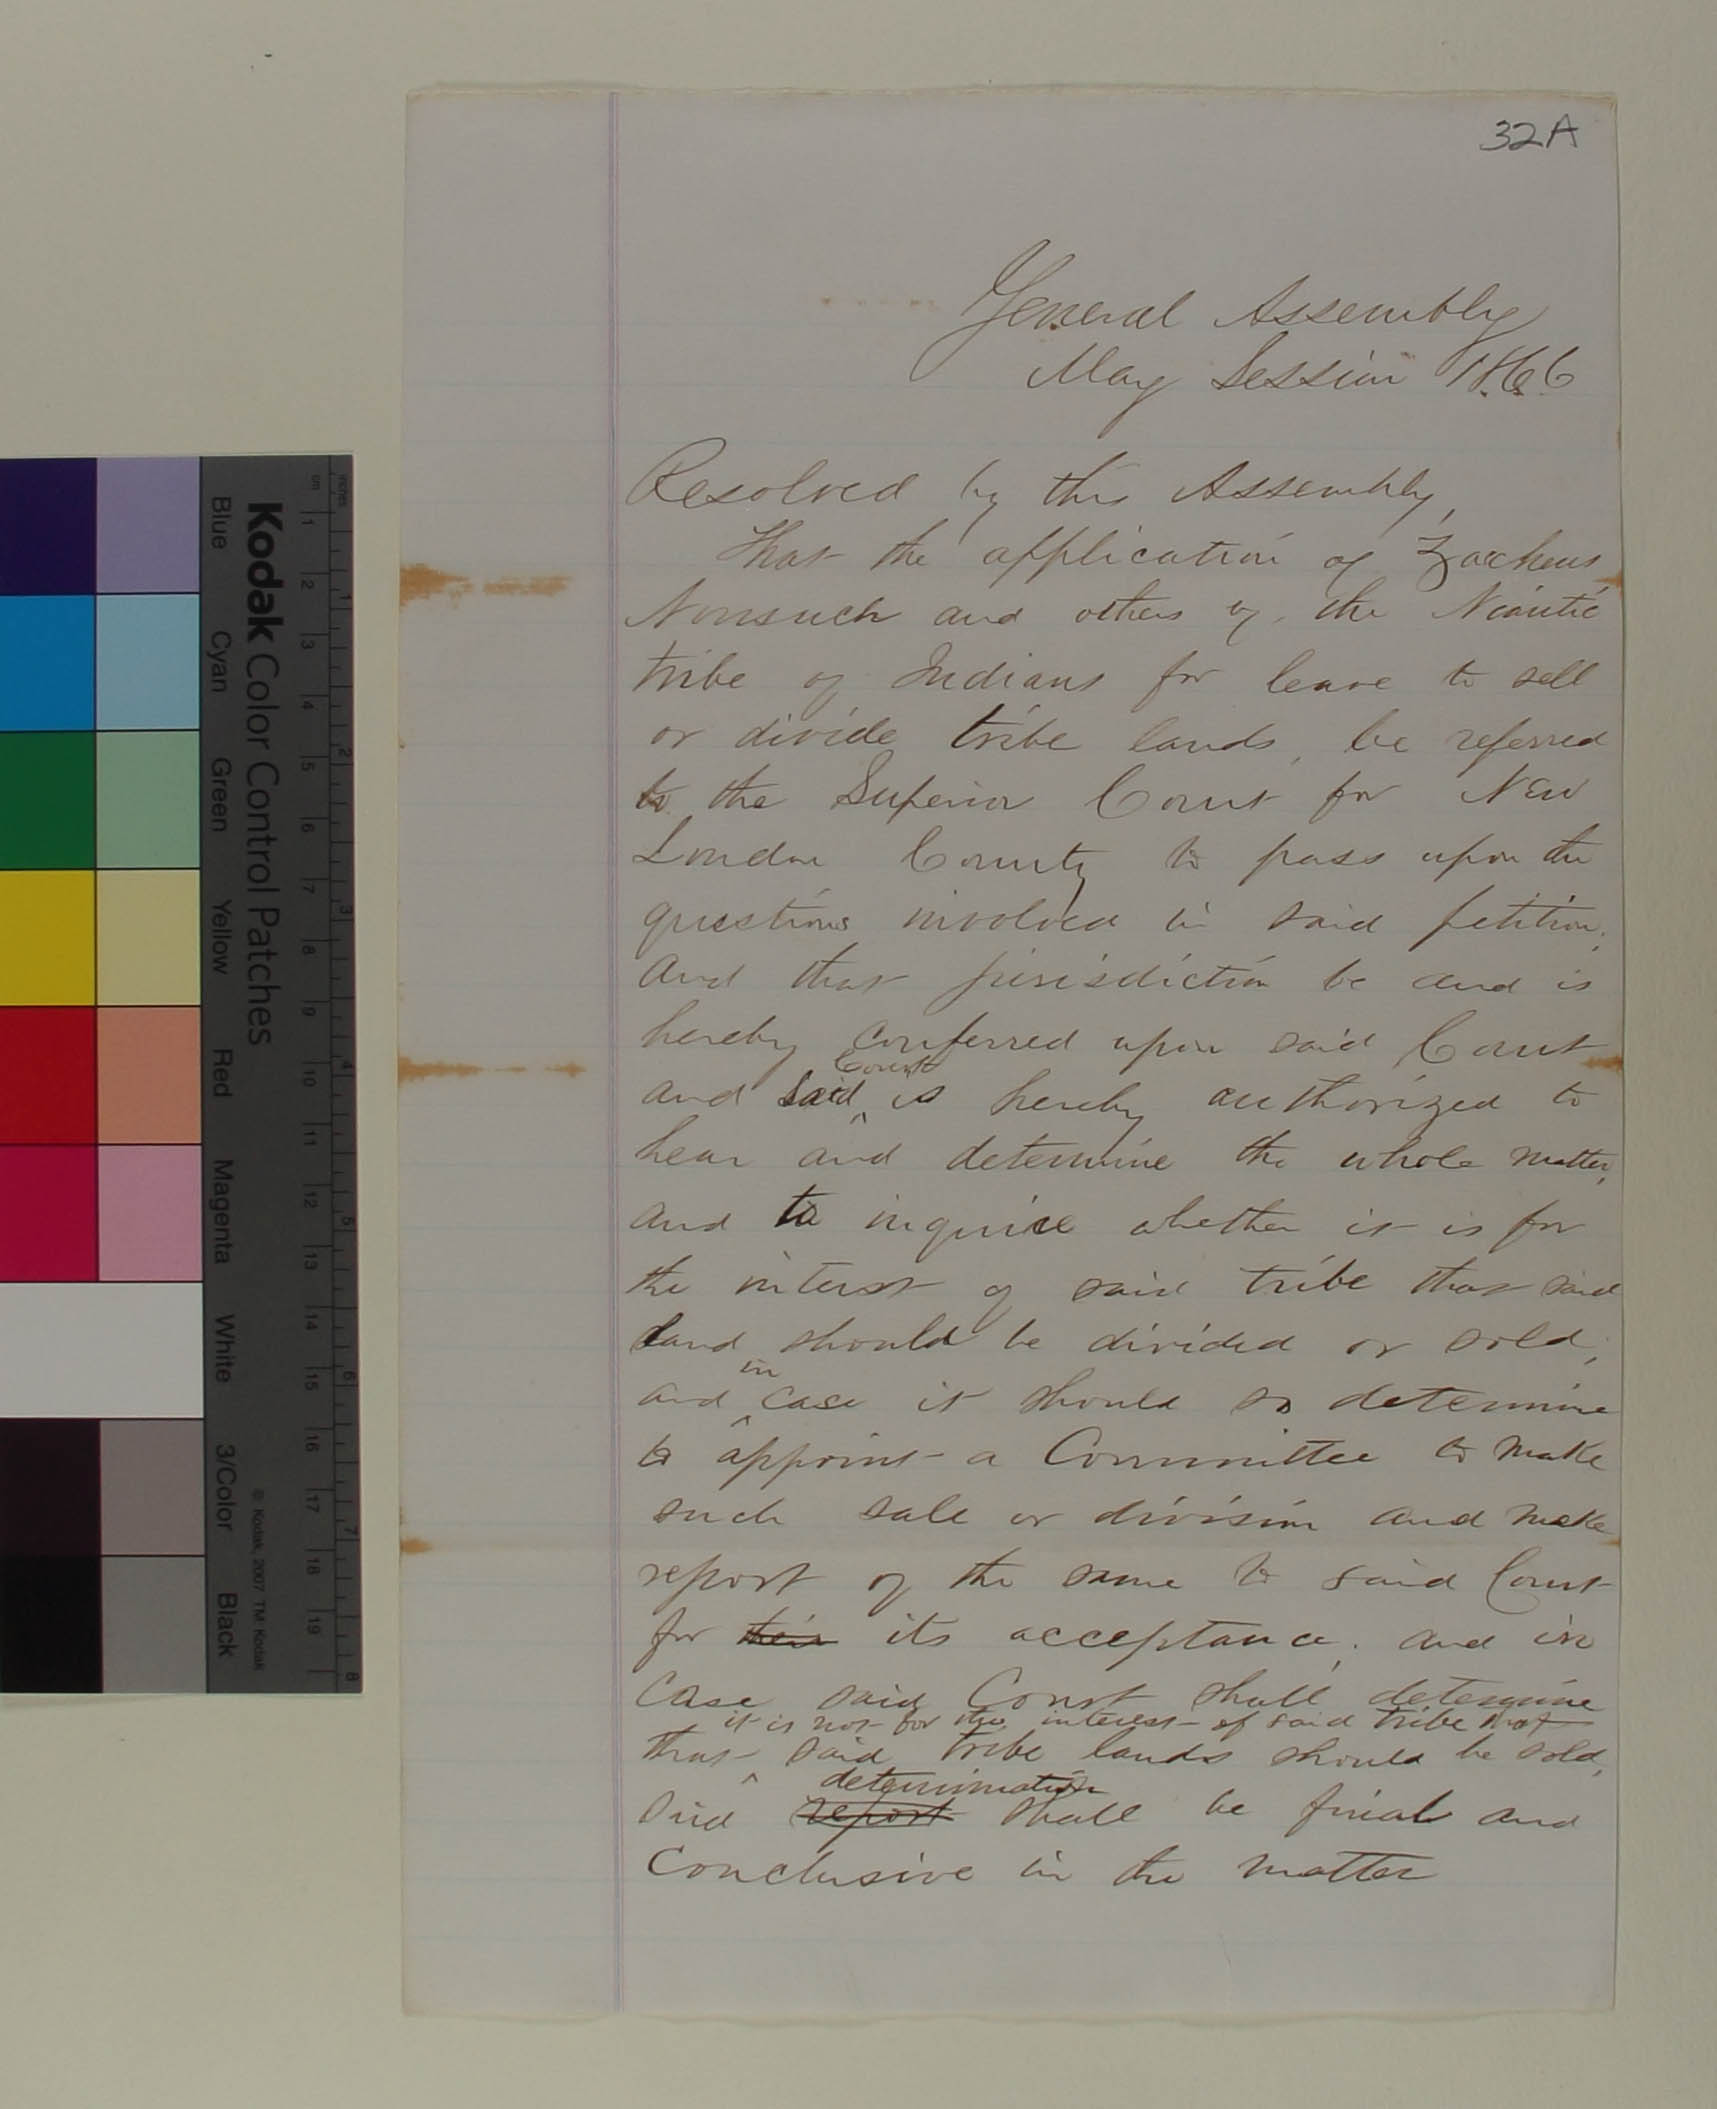 32A
General Assembly
May Session 1866
Resolved by this Assembly,
that the application of Zacheus
Nonsuch and others of the Niantic
tribe of Indians for leave to sell
or divide tribe lands, be referred
to the Superior Court for New
London County to pass upon the
questions involved in said petition,
and that jurisdiction be and is
hereby conferred upon said Court
Court
and said ^ is hereby authorized to
hear and determine the whole matter,
and to inquire whether it is for
the interest of said tribe that said
land should be divided or sold,
in
and ^ case it should so determine
to appoint a Committee to make
such sale or division and make
report of the same to said Court
for their its acceptance, and in
case said Court shall determine
it is not for the interest of said tribe that
that ^ said tribe lands should be sold,
determination
said report shall be final and
conclusive in the matter
Kodak Color Control Patches
© Kodak, 2007 TM Kodak
Blue Cyan Green Yellow Red Magenta White 3/Color Black
cm 1 2 3 4 5 6 7 8 9 10 11 12 13 14 15 16 17 18 19
inches 1 2 3 4 5 6 7 8